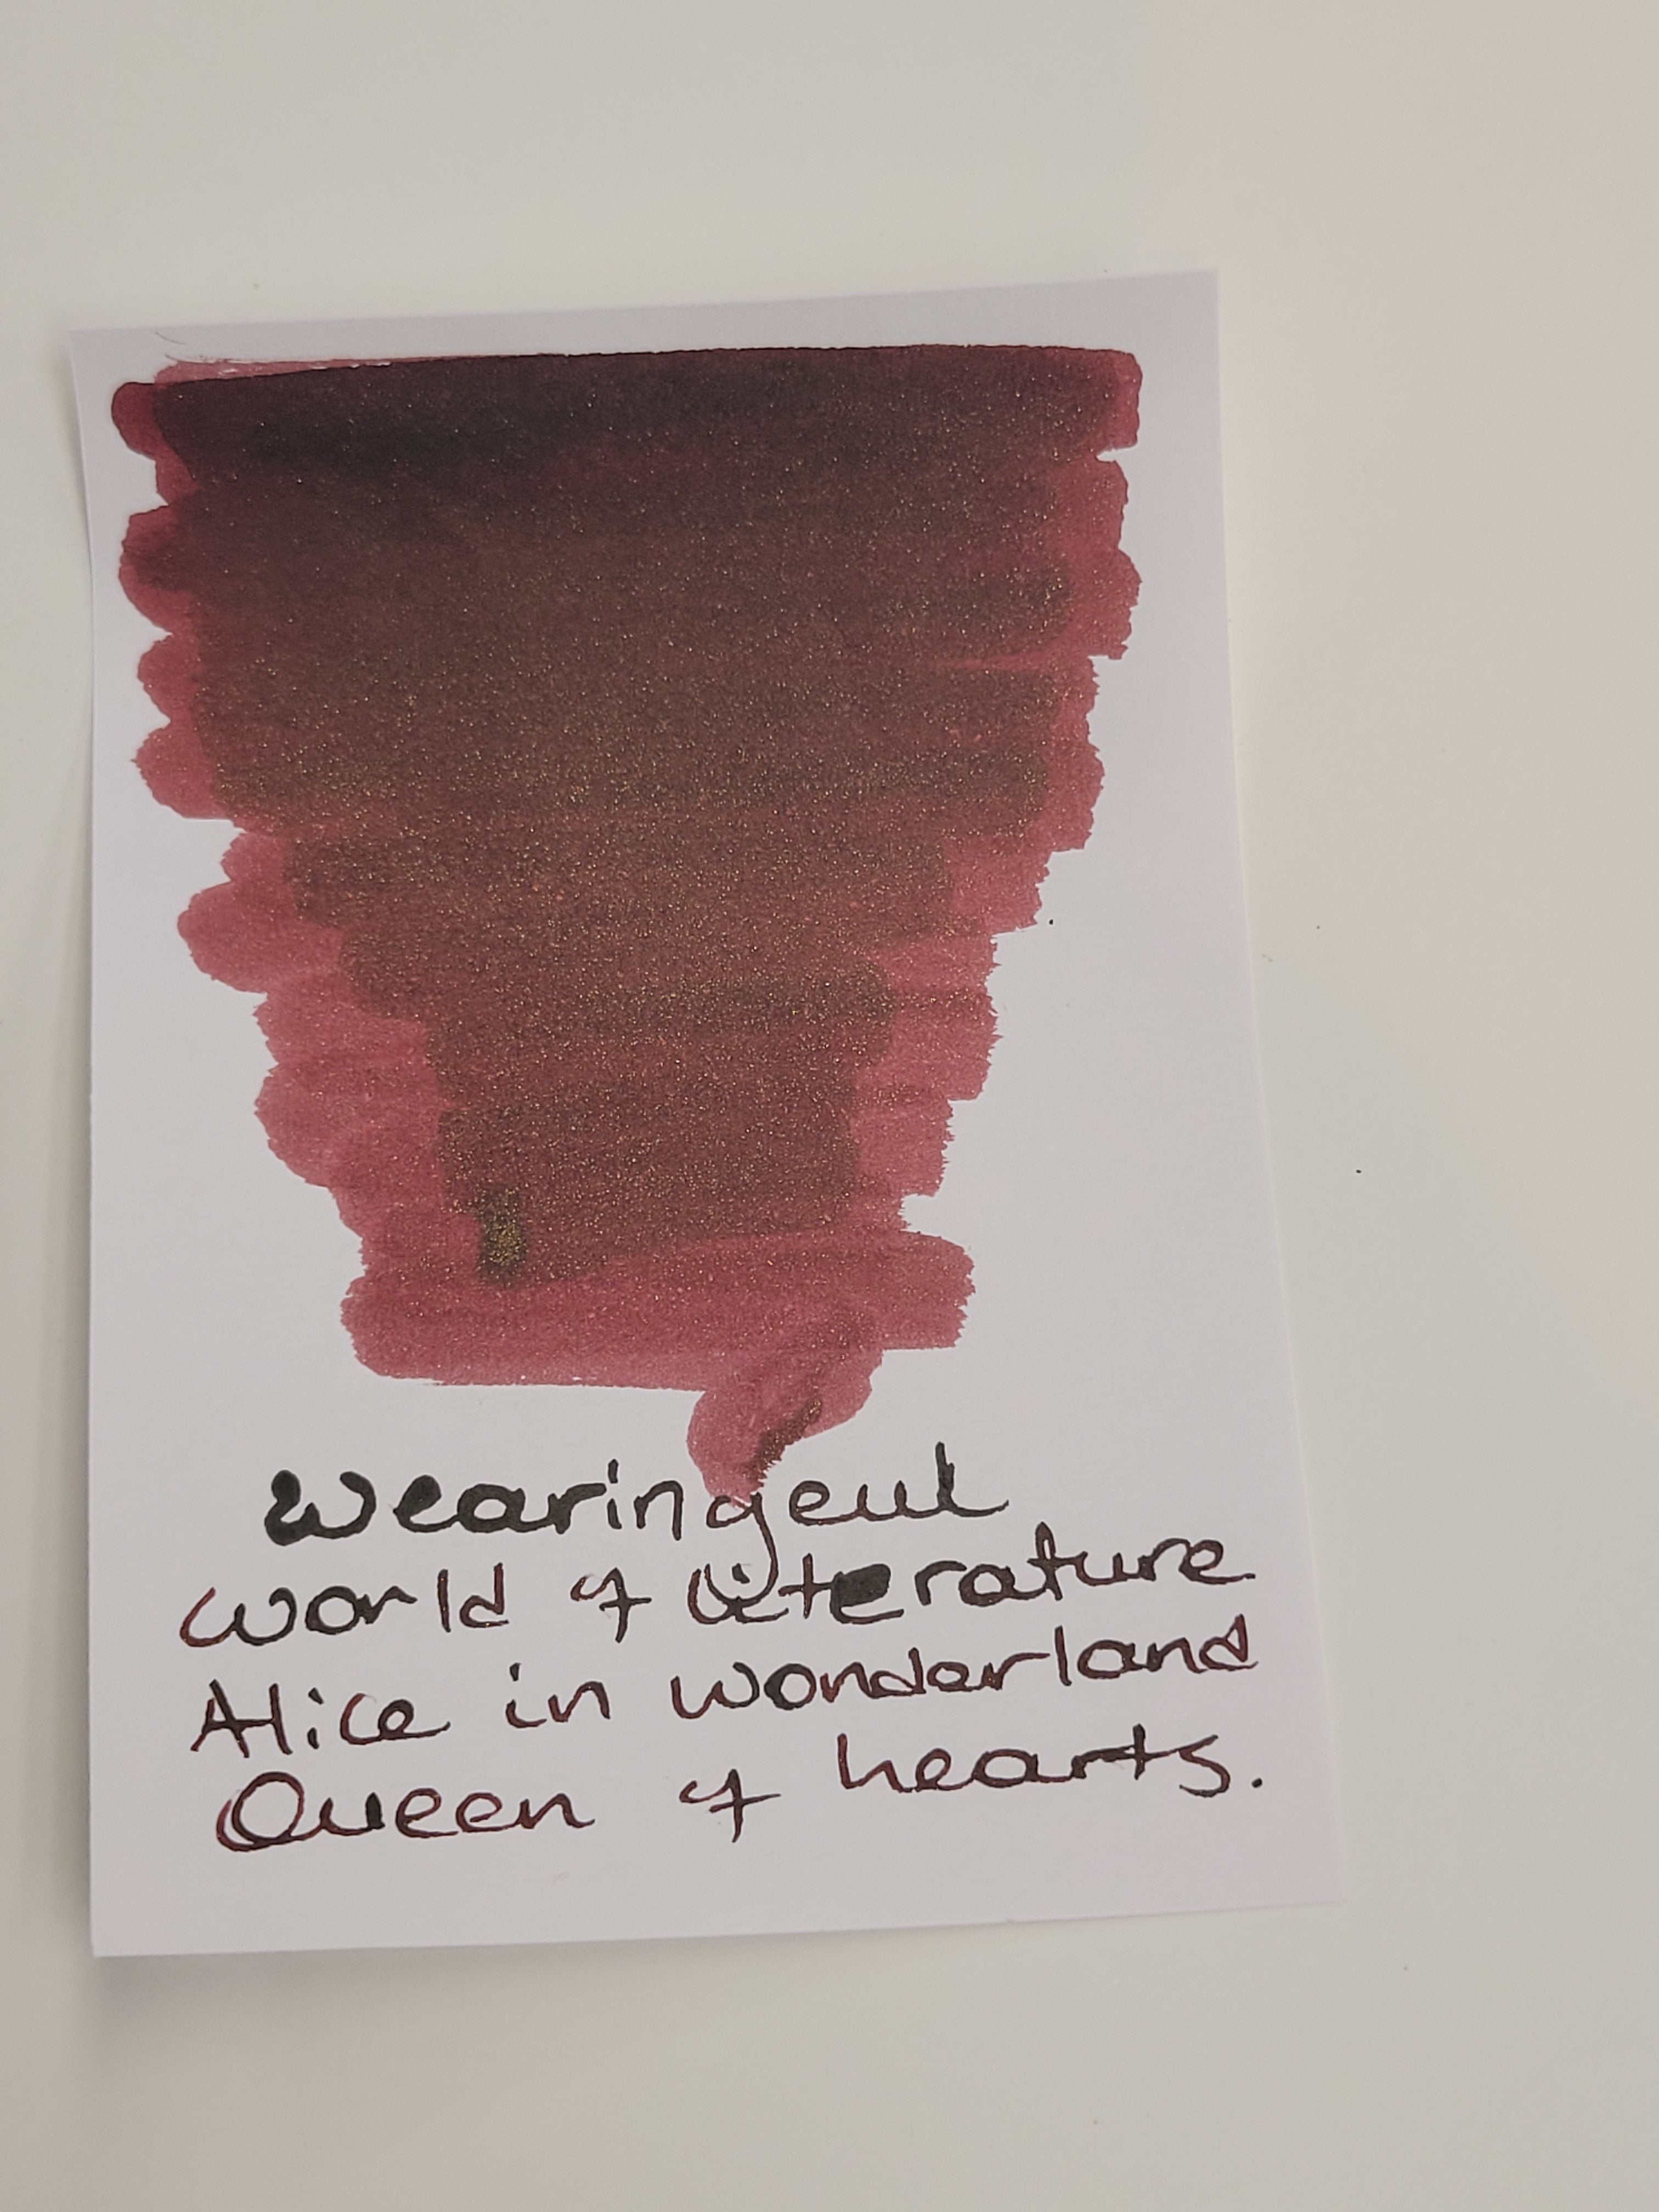 Wearingeul
World of Literature
Alice in Wonderland
Queen of hearts.